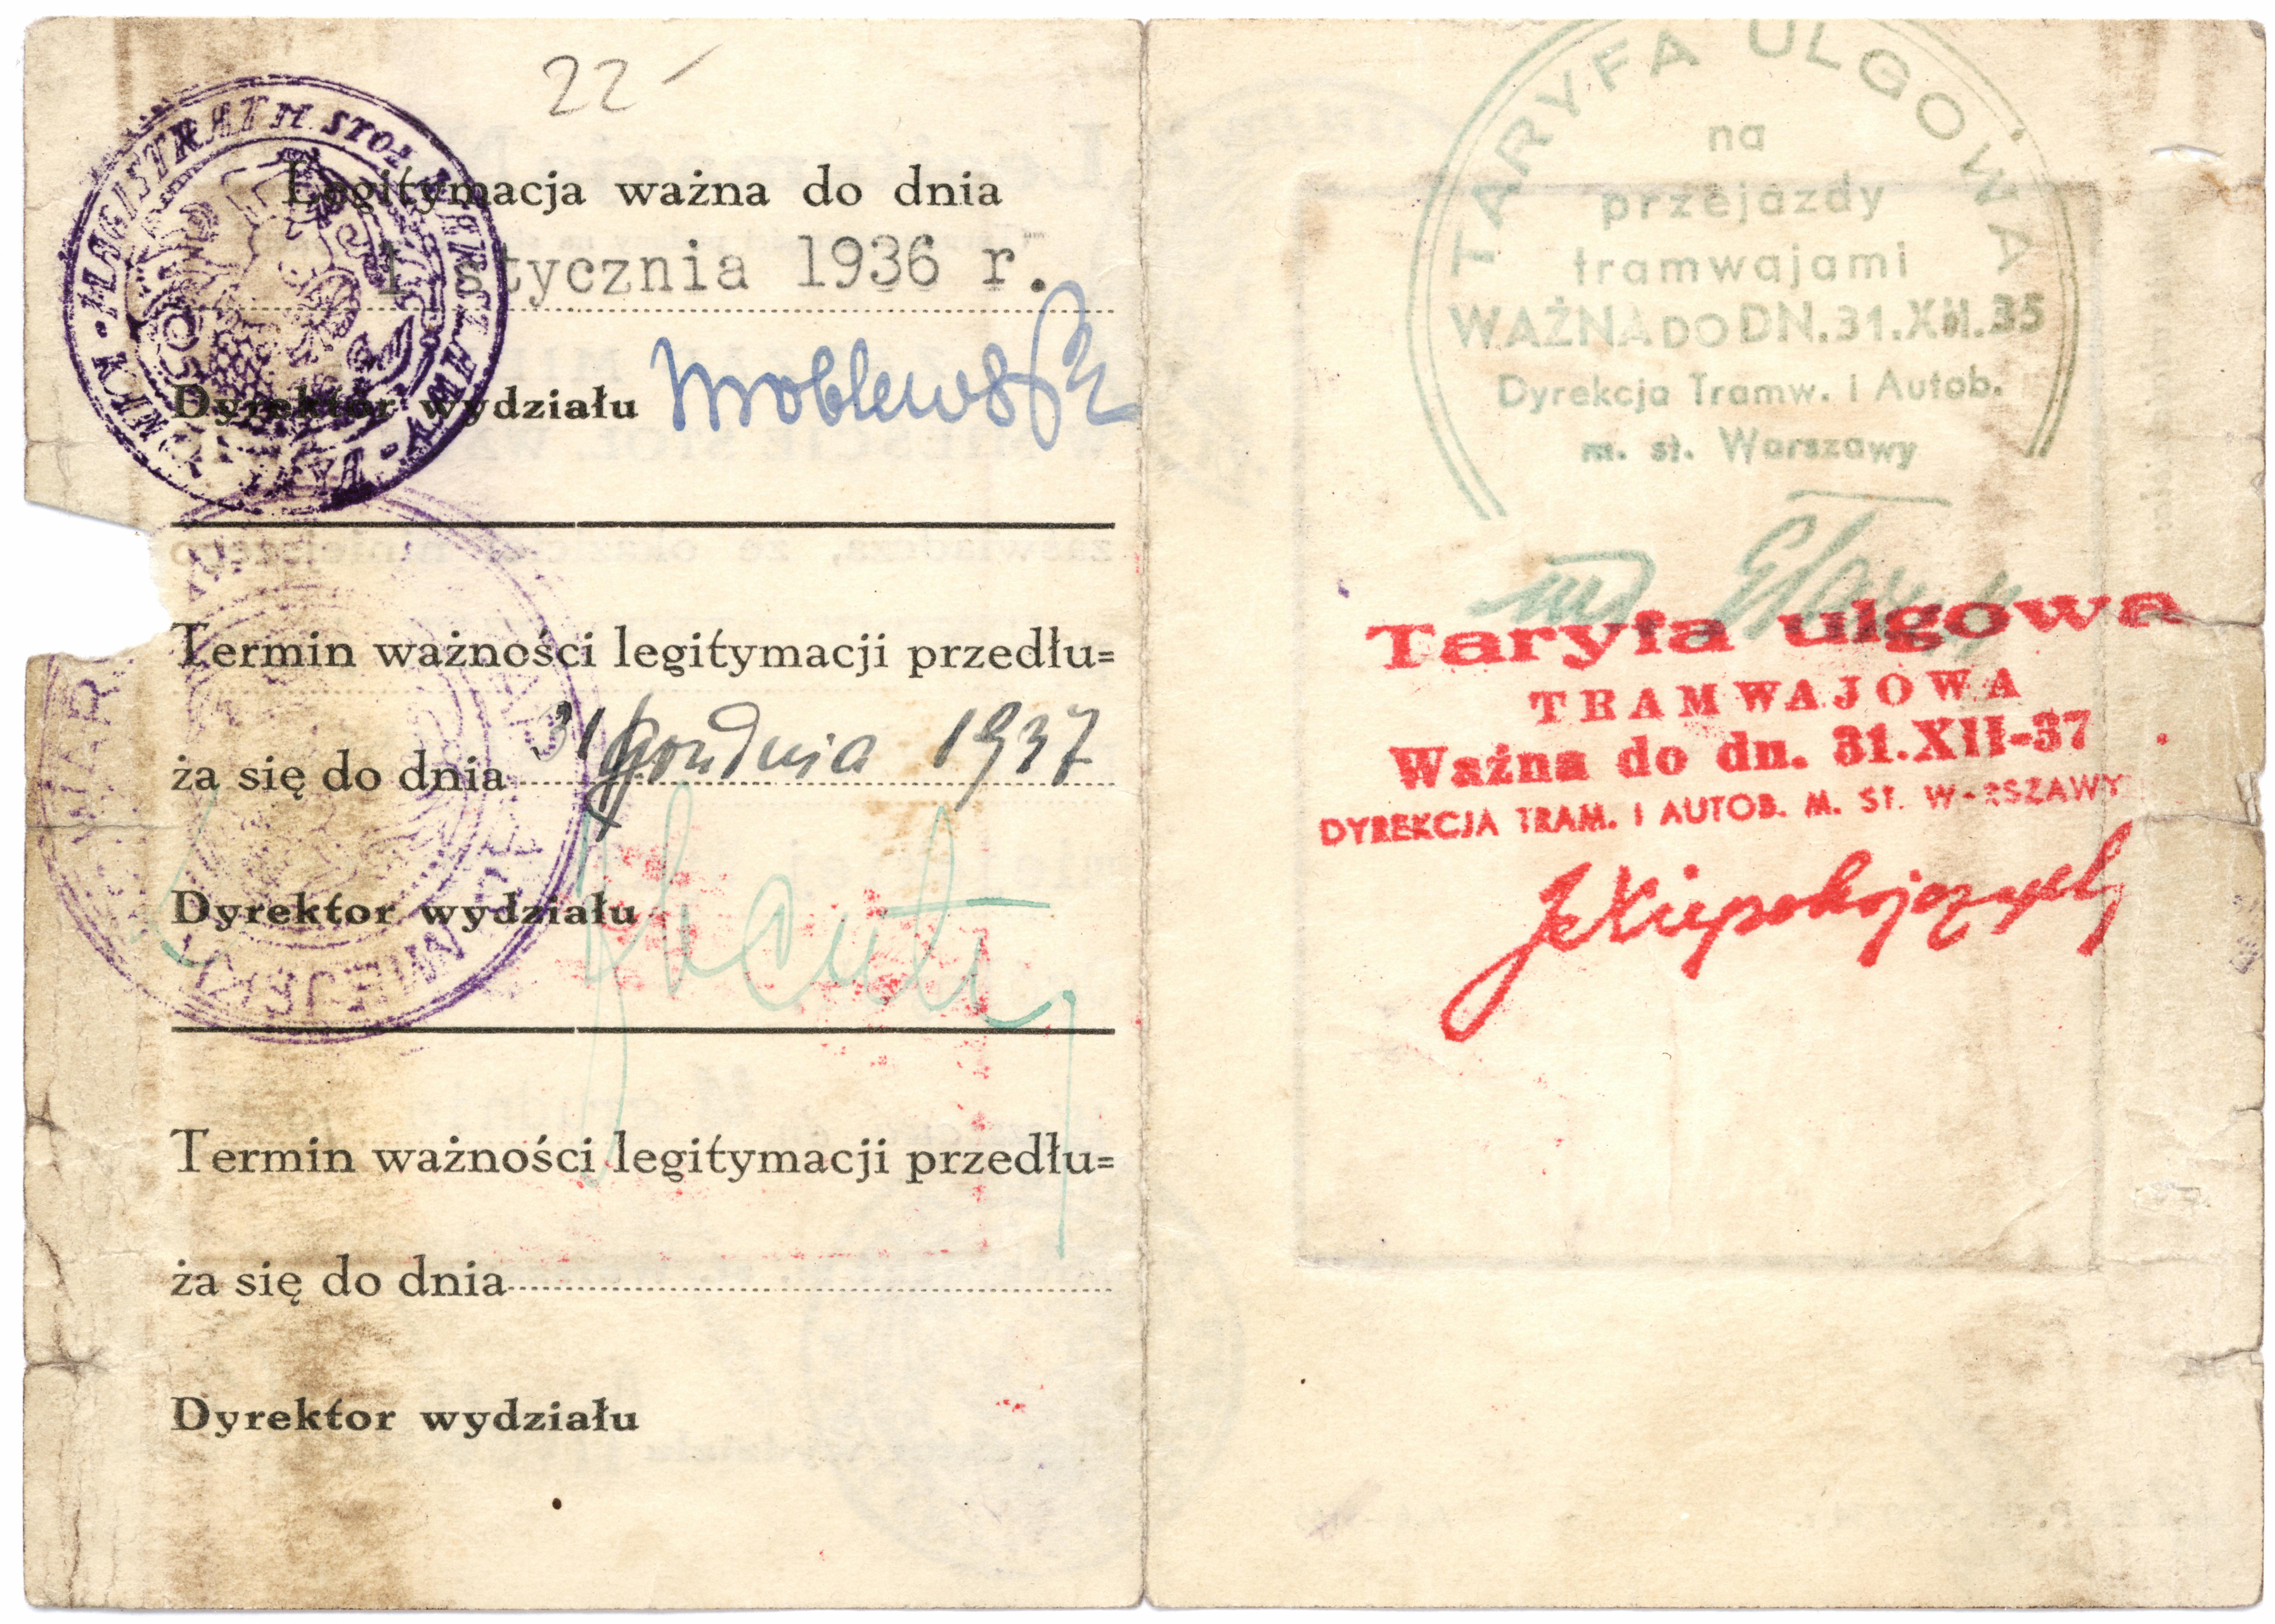 22
MAGISTRAT M. STOŁ. WARSZAWY
Legitymacja ważna do dnia
1 stycznia 1936 r.
Dyrektor wydziału
Termin ważności legitymacji przedłu=
ża się do dnia 31 grudnia 1937
Dyrektor wydziału
Termin ważności legitymacji przedłu=
ża się do dnia
Dyrektor wydziału
TARYFA ULGOWA
na
przejazdy
tramwajami
WAŻNA DO DN. 31.XII.35
Dyrekcja Tramw. i Autob.
m. st. Warszawy
Taryfa ulgowa
TRAMWAJOWA
Ważna do dn. 31.XII-37
DYREKCJA TRAM. I AUTOB. M. ST. WARSZAWY